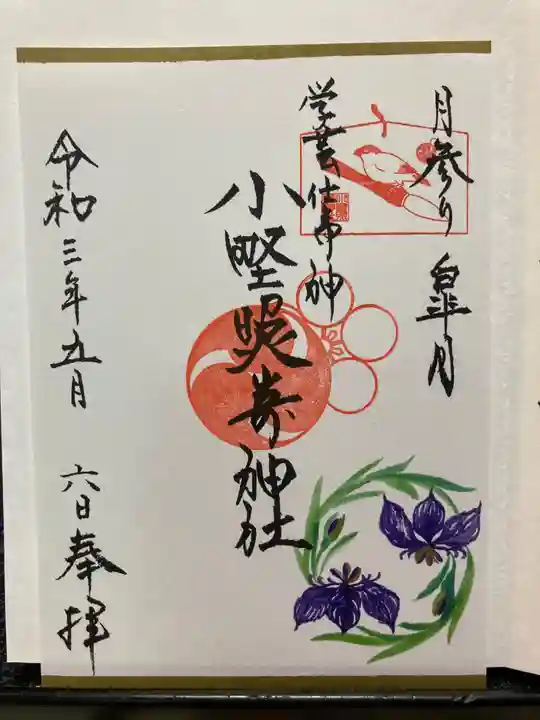 月参り 皐月
学芸仕事神
小野照崎神社
令和三年五月 六日奉拝